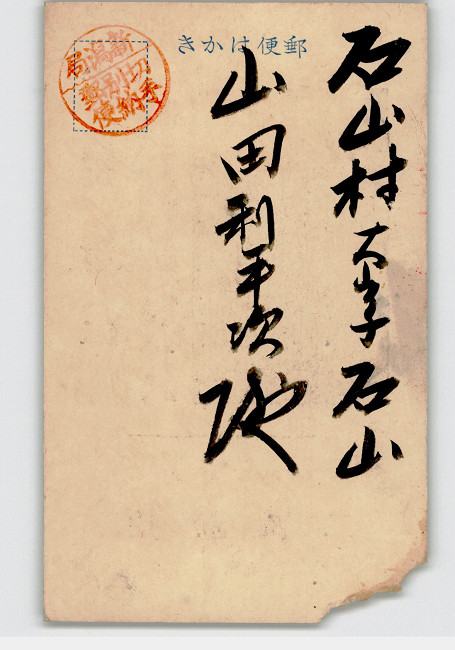 郵便はかき
新潟局
切手
別納
郵便
石山村大字石山
山田利平次殿